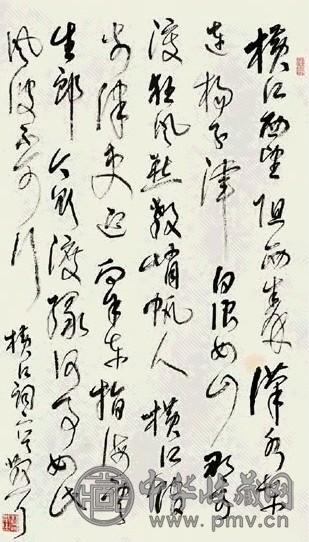 横江西望阻西秦漢水東
連楊子津白浪如山那可
渡狂風愁殺峭帆人横江館
前津吏迎向余東指海雲
生郎今欲渡緣何事如此
風波不可行
横江詞
中华收藏网
www.pmv.cn